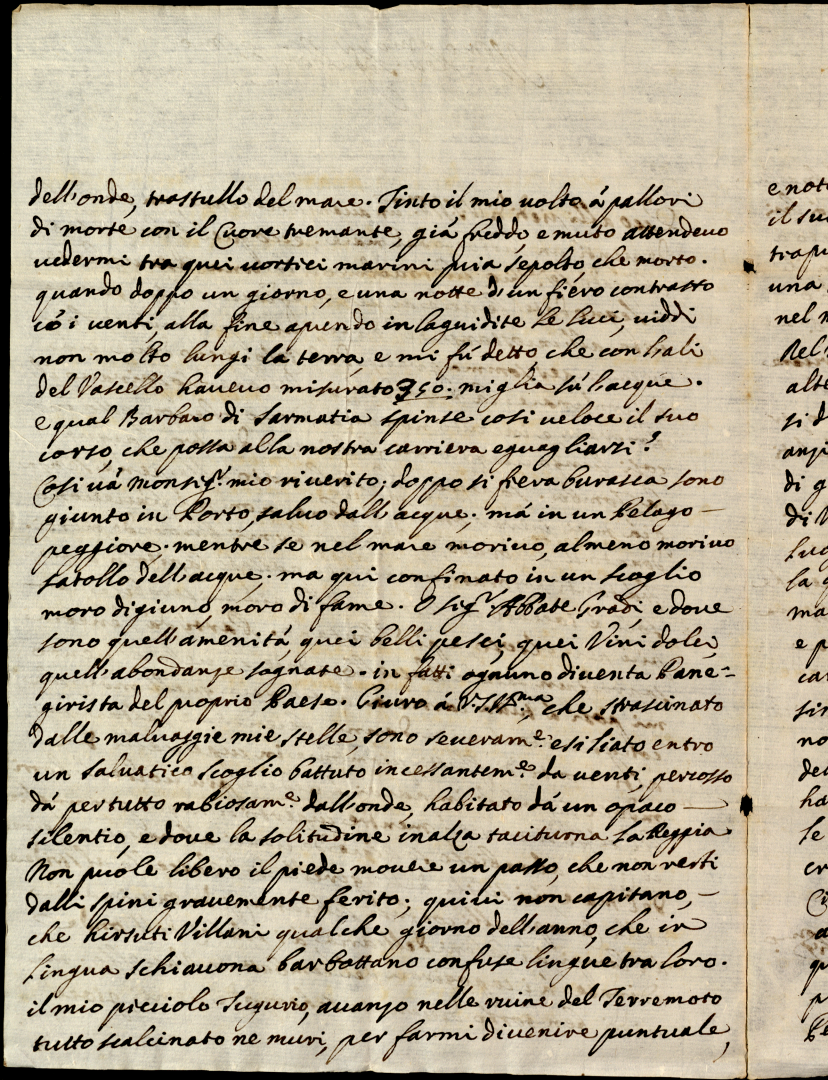 dell'onde, trastullo del mare. Tinto il mio uolto á pallori
di morte con il Cuore tremante, giá freddo, e muto attendeuo
uedermi tra quei uortici marini pria sepolto, che morto.
quando doppo un giorno, e una notte d'un fiero contrasto
có i uenti, alla fine aprendo in laguidite le luci, uiddi
non molto lungi la terra, e mi fú detto, che con l'ali
del Vascello haueuo misurato 350: miglia sú l'acque.
e qual Barbaro di Sarmatia spinse cosi ueloce il suo
corso, che possa alla nostra carriera eguagliarsi?
Cosi uá Monsig.r mio riuerito; doppo si fiera burasca sono
giunto in Porto, saluo dall'acque; má in un Pelago –
peggiore. mentre se nel mare moriuo, almeno moriuo
satollo dell'acque. ma qui confinato in un scoglio
moro digiuno, moro di fame. O sig.r Abbate Gradi, e doue
sono quell'amenitá, quei belli pesci, quei Vini dolci,
quell'abondanze sognate. in fatti ognuno diventa Pane=
girista del proprio Paese. Giuro á V.S.Ill.ma, che strascinato
dalle maluaggie mie stelle, sono seueram.e esiliato entro
un saluatico scoglio battuto incessantem.e da uenti, percosso
dá per tutto rabiosam.e dall'onde, habitato dá un opaco –
silentio, e doue la solitudine inalza taciturna la Reggia
Non puole libero il piede mouere un passo, che non resti
dalli spini grauemente ferito; quiui non capitano, –
che hirsuti Villani qualche giorno dell'anno, che in
lingua schiauona barbottano confuse lingue tra loro.
il mio picciolo Tugurio, auanzo nelle ruine del Terremoto
tutto scalcinato ne muri, per farmi diuenire puntuale,
e not
il su
trap
una
nel
Rel
alt
si d
anzi
di g
di V
luo
la
ma
e p
ca
sin
no
de
ha
le
cr
Ci
a
qu
p
Pe